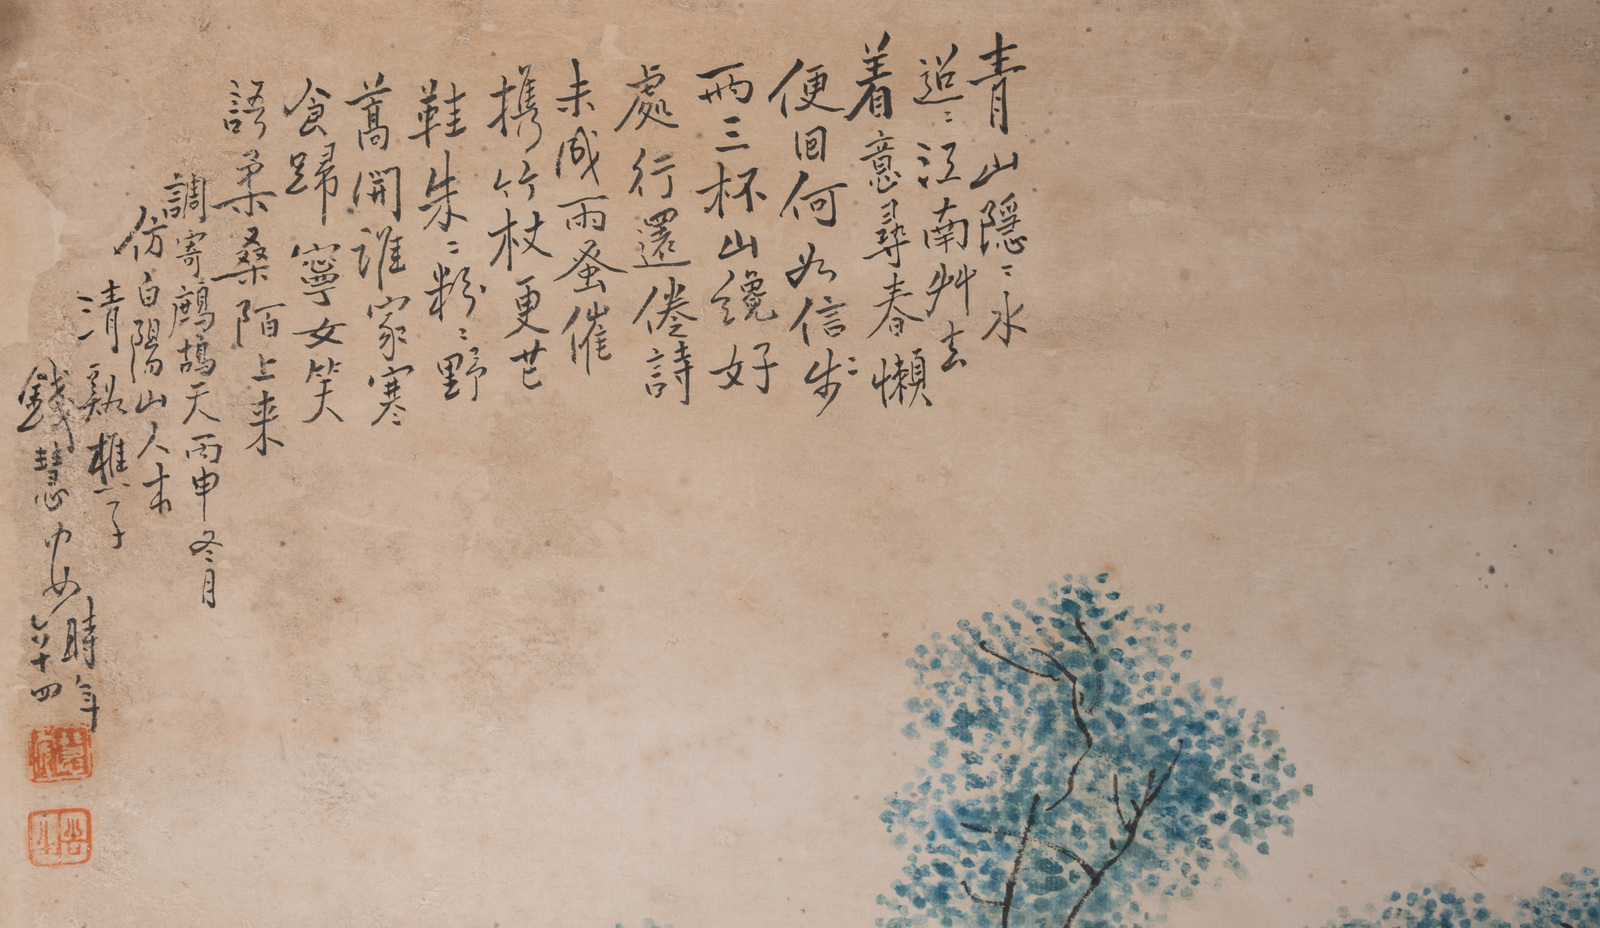 青山隱〻水
迢〻江南艸去
着意尋春懶
便回何如信步〻
兩三杯山纔好
處行還倦詩
未成雨蚤催
携竹杖更芒
鞋朱〻粉〻野
蒿開誰家寒
食歸寧女笑
語柔桑陌上来
調寄鷓鴣天丙申冬月
仿白陽山人本
清谿樵子
錢慧安時年
六十四